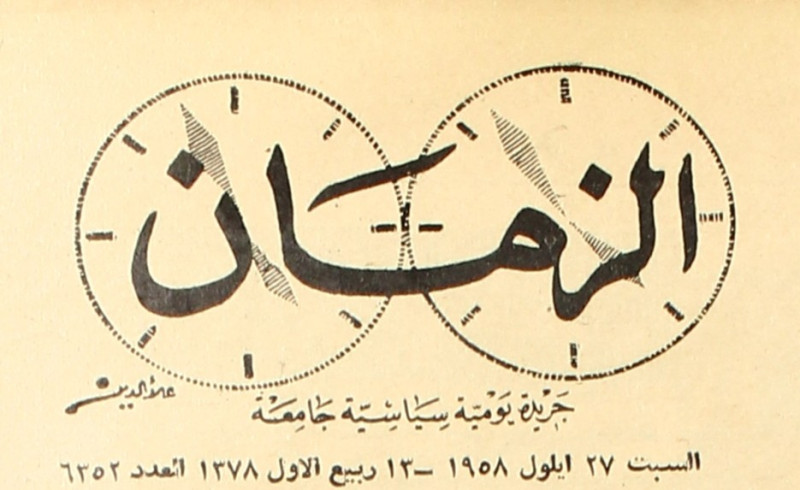 الزمان
علاء الدين
جريدة يومية سياسية جامعة
السبت ٢٧ ايلول ١٩٥٨ – ١٣ ربيع الاول ١٣٧٨ العدد ٦٣٥٢